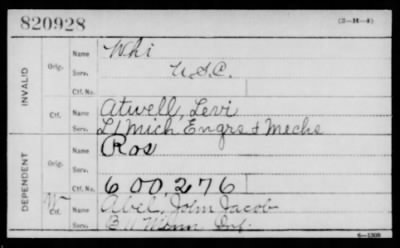 820928 (3-H-4)
INVALID
Orig.
Name Whi
Serv. U.S.C.
Ctf. No.
Ctf.
Name Atwell, Levi
Serv. L 1 Mich Engrs & Mechs
DEPENDENT
Orig.
Name Ros
Serv.
Ctf. No. 600,276
Ctf.
Name Abel, John Jacob
Serv. Minn Inf.